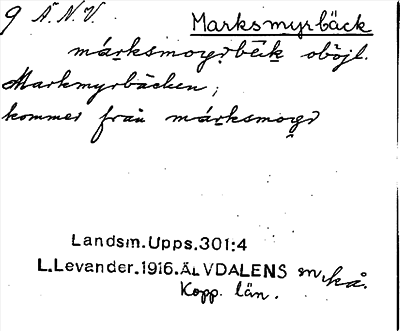 9 Ä.N.V. Marksmyrbäck
márksmoyrbëik oböjl.
Markmyrbäcken;
kommer från márksmoyr
Landsm.Upps.301:4
L.Levander.1916.ÄLVDALENS
Kopp. län.